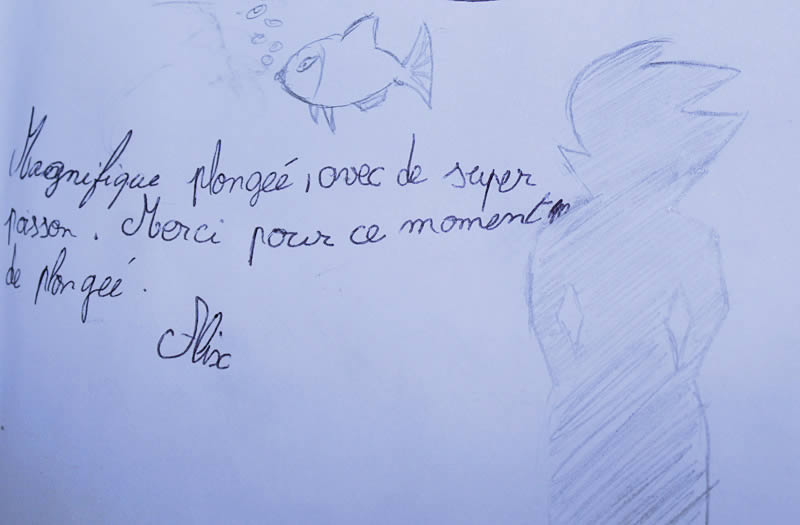 Magnifique plongéé, avec de super
poisson. Merci pour ce moment
de plongéé.
Alix